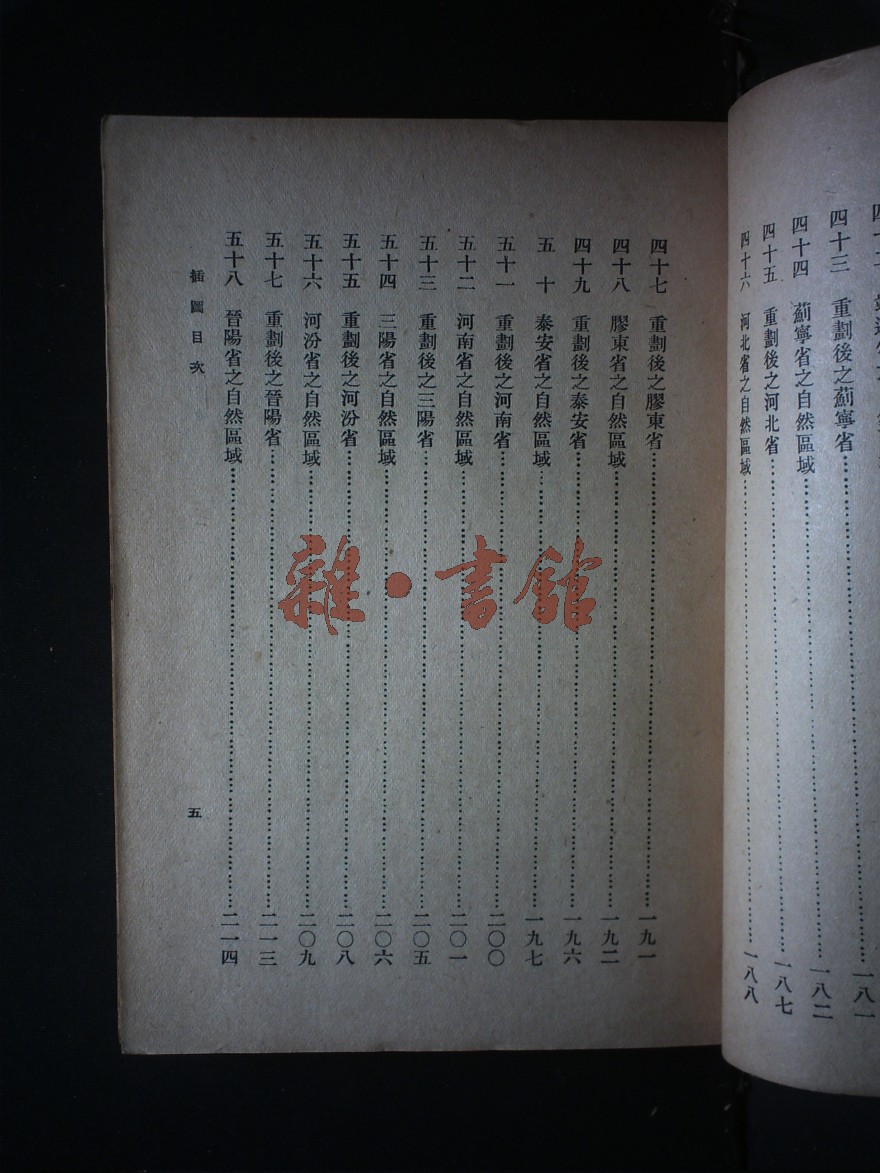 四十三 重劃後之薊寧省……一八一
四十四 薊寧省之自然區域……一八二
四十五 重劃後之河北省……一八七
四十六 河北省之自然區域……一八八
四十七 重劃後之膠東省……一九一
四十八 膠東省之自然區域……一九二
四十九 重劃後之泰安省……一九六
五十 泰安省之自然區域……一九七
五十一 重劃後之河南省……二〇〇
五十二 河南省之自然區域……二〇一
五十三 重劃後之三陽省……二〇五
五十四 三陽省之自然區域……二〇六
五十五 重劃後之河汾省……二〇八
五十六 河汾省之自然區域……二〇九
五十七 重劃後之晉陽省……二一三
五十八 晉陽省之自然區域……二一四
插圖目次
五
雜·書館